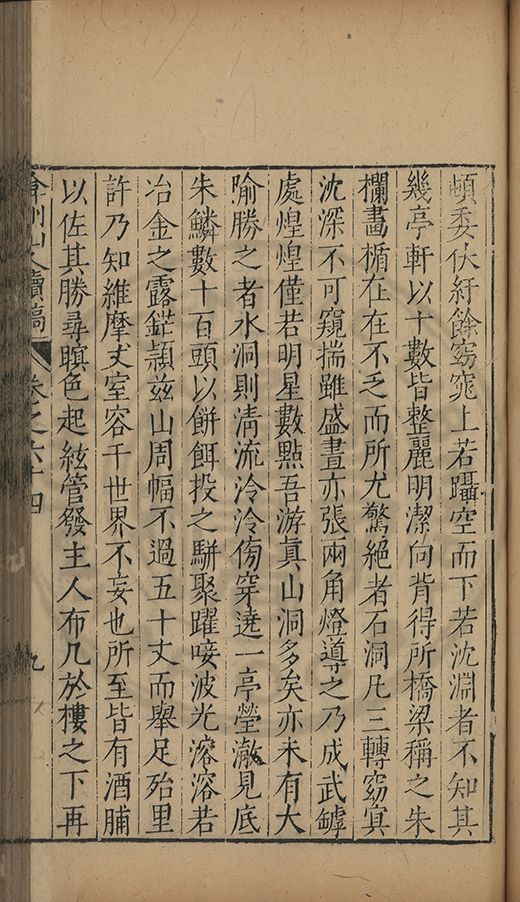 頓委伏紆餘窈窕上若躡空而下若沈淵者不知其
幾亭軒以十數皆整麗明潔向背得所橋梁稱之朱
欄畫楯在在不乏而所尤驚絕者石洞凡三轉窈寘
沈深不可窺揣雖盛晝亦張兩角燈導之乃成武罅
處煌煌僅若明星數點吾游真山洞多矣亦未有大
喻勝之者水洞則淸流泠泠傍穿遶一亭瑩澈見底
朱鱗數十百頭以餅餌投之駢聚躍唼波光溶溶若
冶金之露鋩頴玆山周幅不過五十丈而舉足殆里
許乃知維摩丈室容千世界不妄也所至皆有酒脯
以佐其勝尋暝色起絃管發主人布几於樓之下再
弇州山人續稿 卷之六十四 九